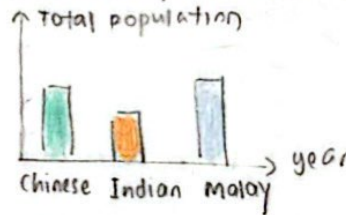 Total population
year
Chinese Indian Malay